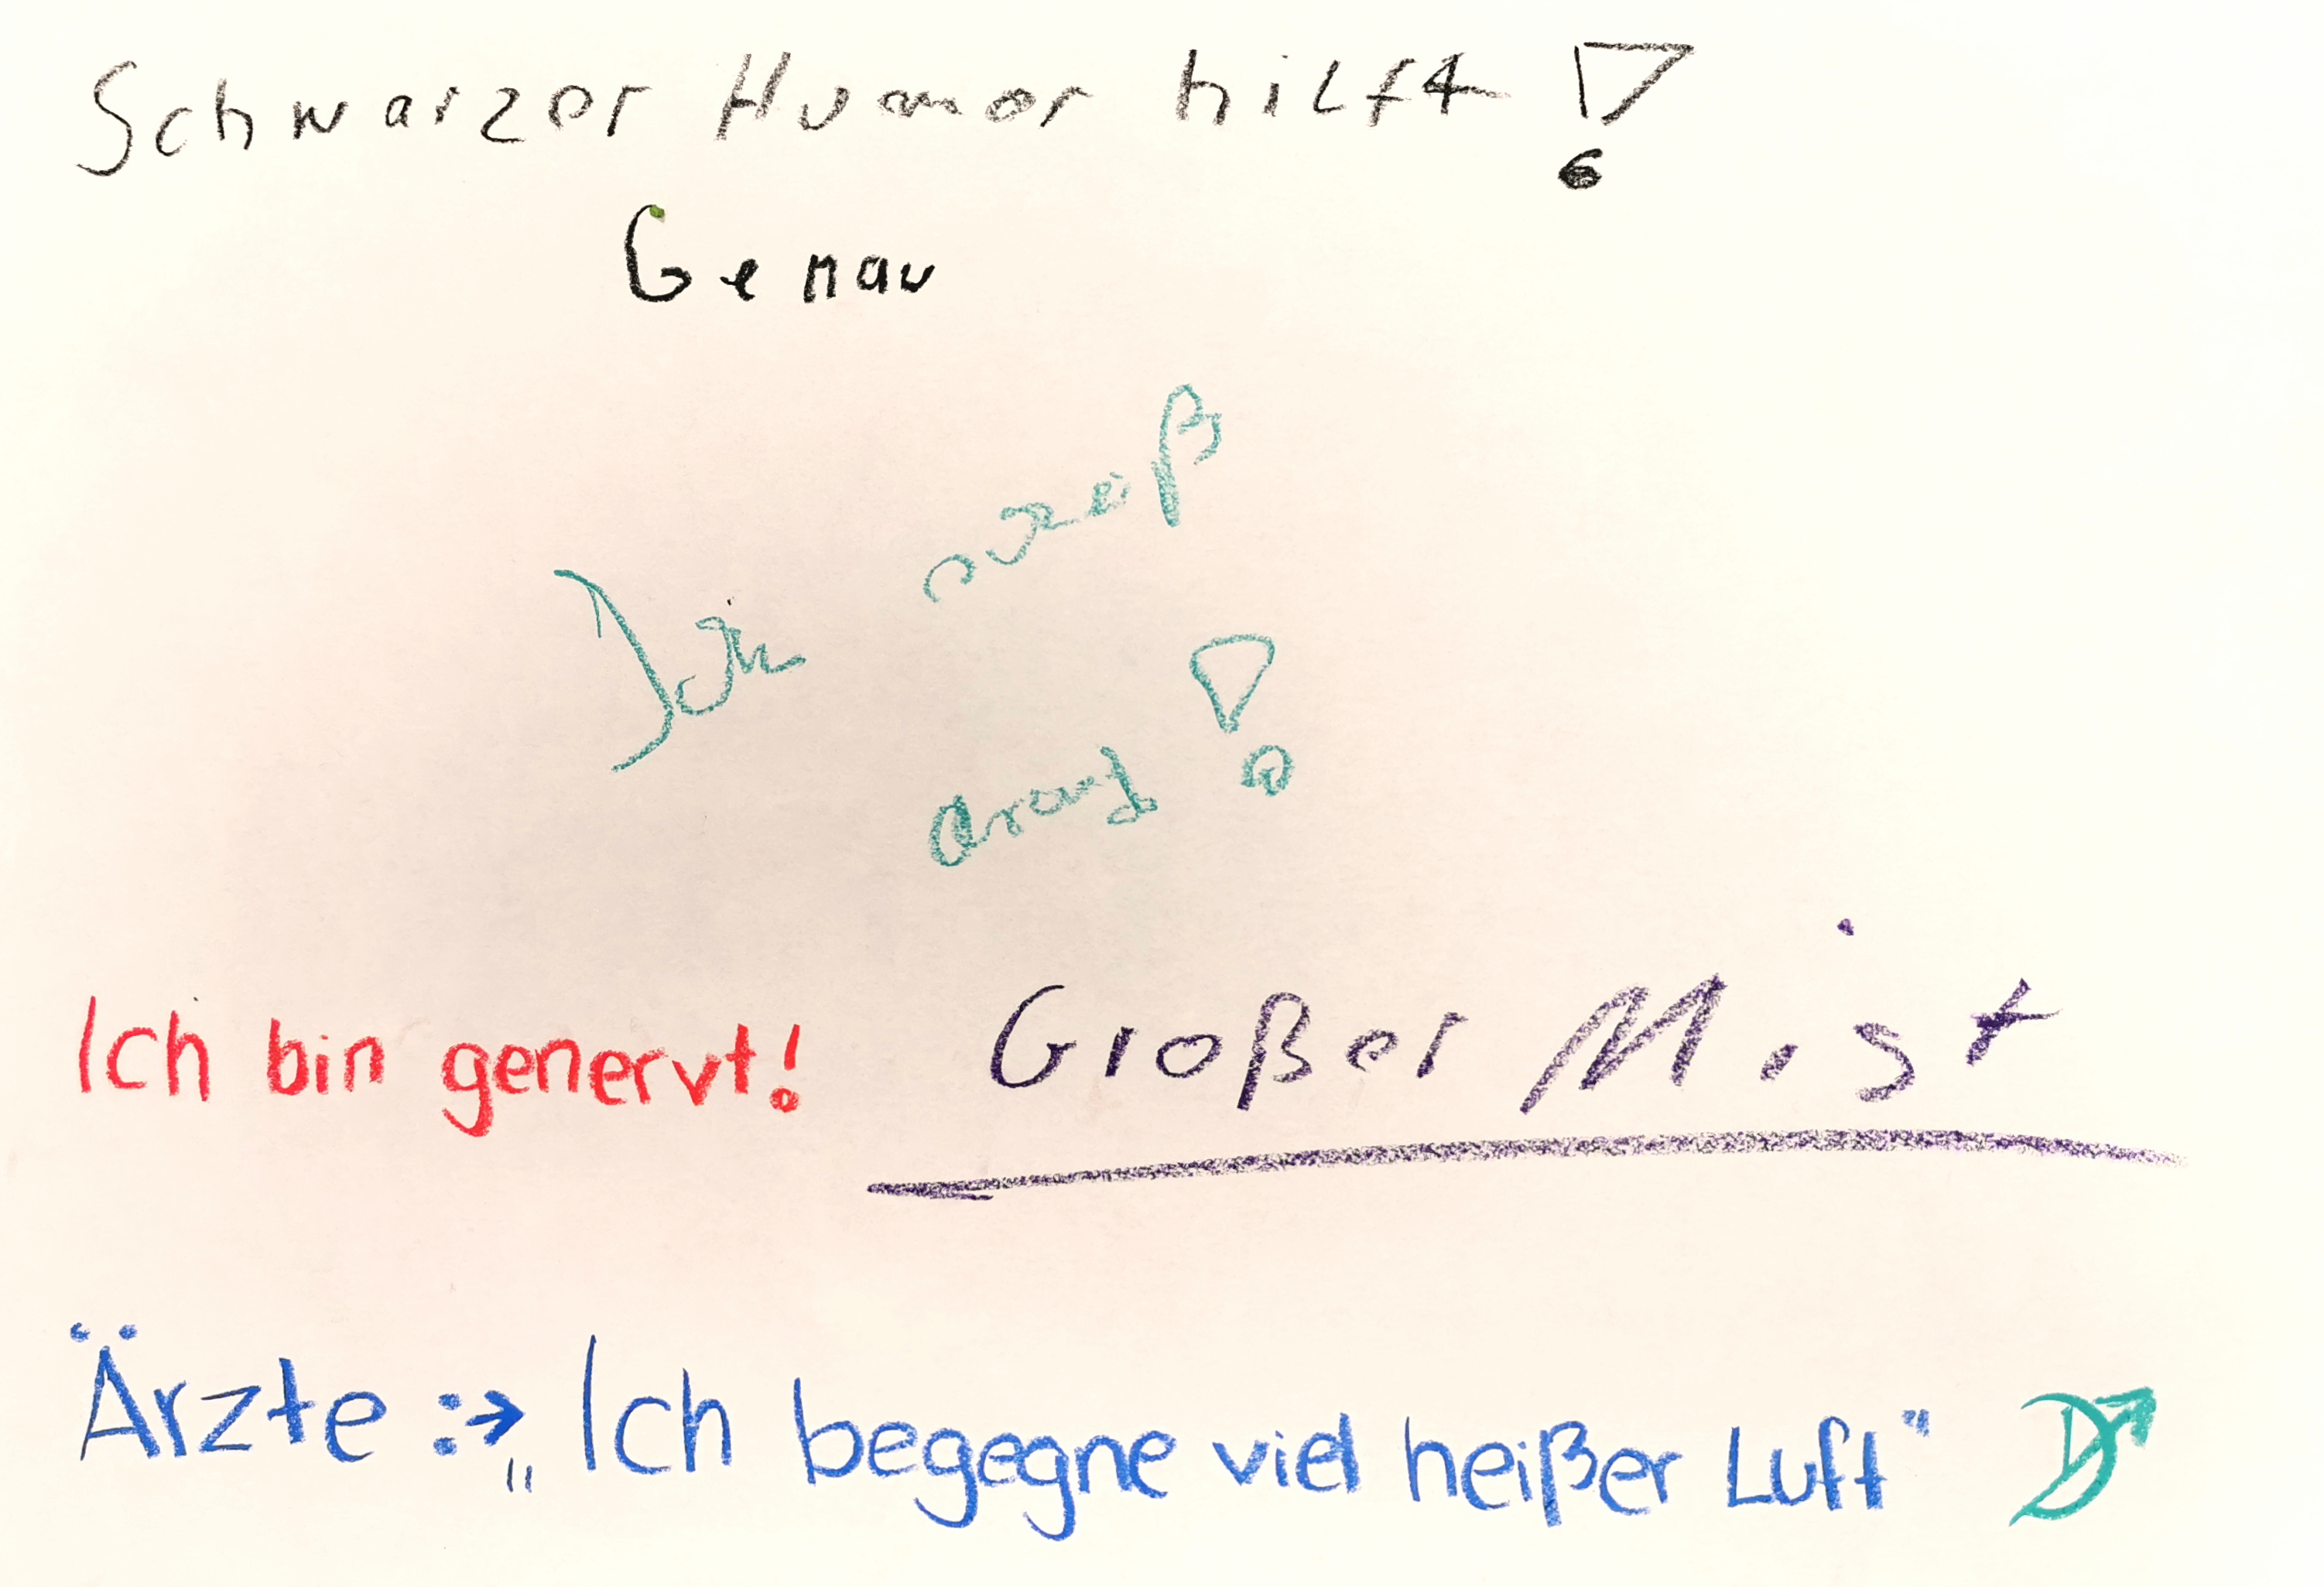 Schwarzer Humor hilft!
Genau
Ich weiß
!
Ich bin genervt! Großer Mist
Ärzte :→ „Ich begegne viel heißer Luft"